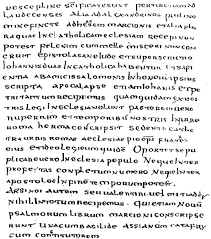 Laudecenses alia ad alexandrinos pauli no
mine fincte ad heresem marcionis et alia plu
ra quae in catholicam eclesiam recepi non
potest fel enim cum melle misceri non con
cruit epistola sane iude et superscrictio
iohannis duas in catholica habentur et sapi
entia ab amicis salomonis in honore ipsius
scripta apocalapse etiam iohanis et pe
tri tantum recipimus quam quidam ex nos
tris legi in eclesia nolunt pastorem uero
nuperrim e temporibus nostris in urbe
roma herma conscripsit sedente cathe
tra urbis romae aeclesiae pio eps fratre
eius et ideo legi eum quide oportet se pu
plicare uero in eclesia populo neque inter
profetas completum numero neque inter
apostolos in fine temporum potest.
Arsinoi autem seu ualentini uel mitiadis
nihil in totum recipemus. qui etiam nouu
psalmorum librum marcioni conscripse
runt una cum basilide assianum catafry
cum contitutorem